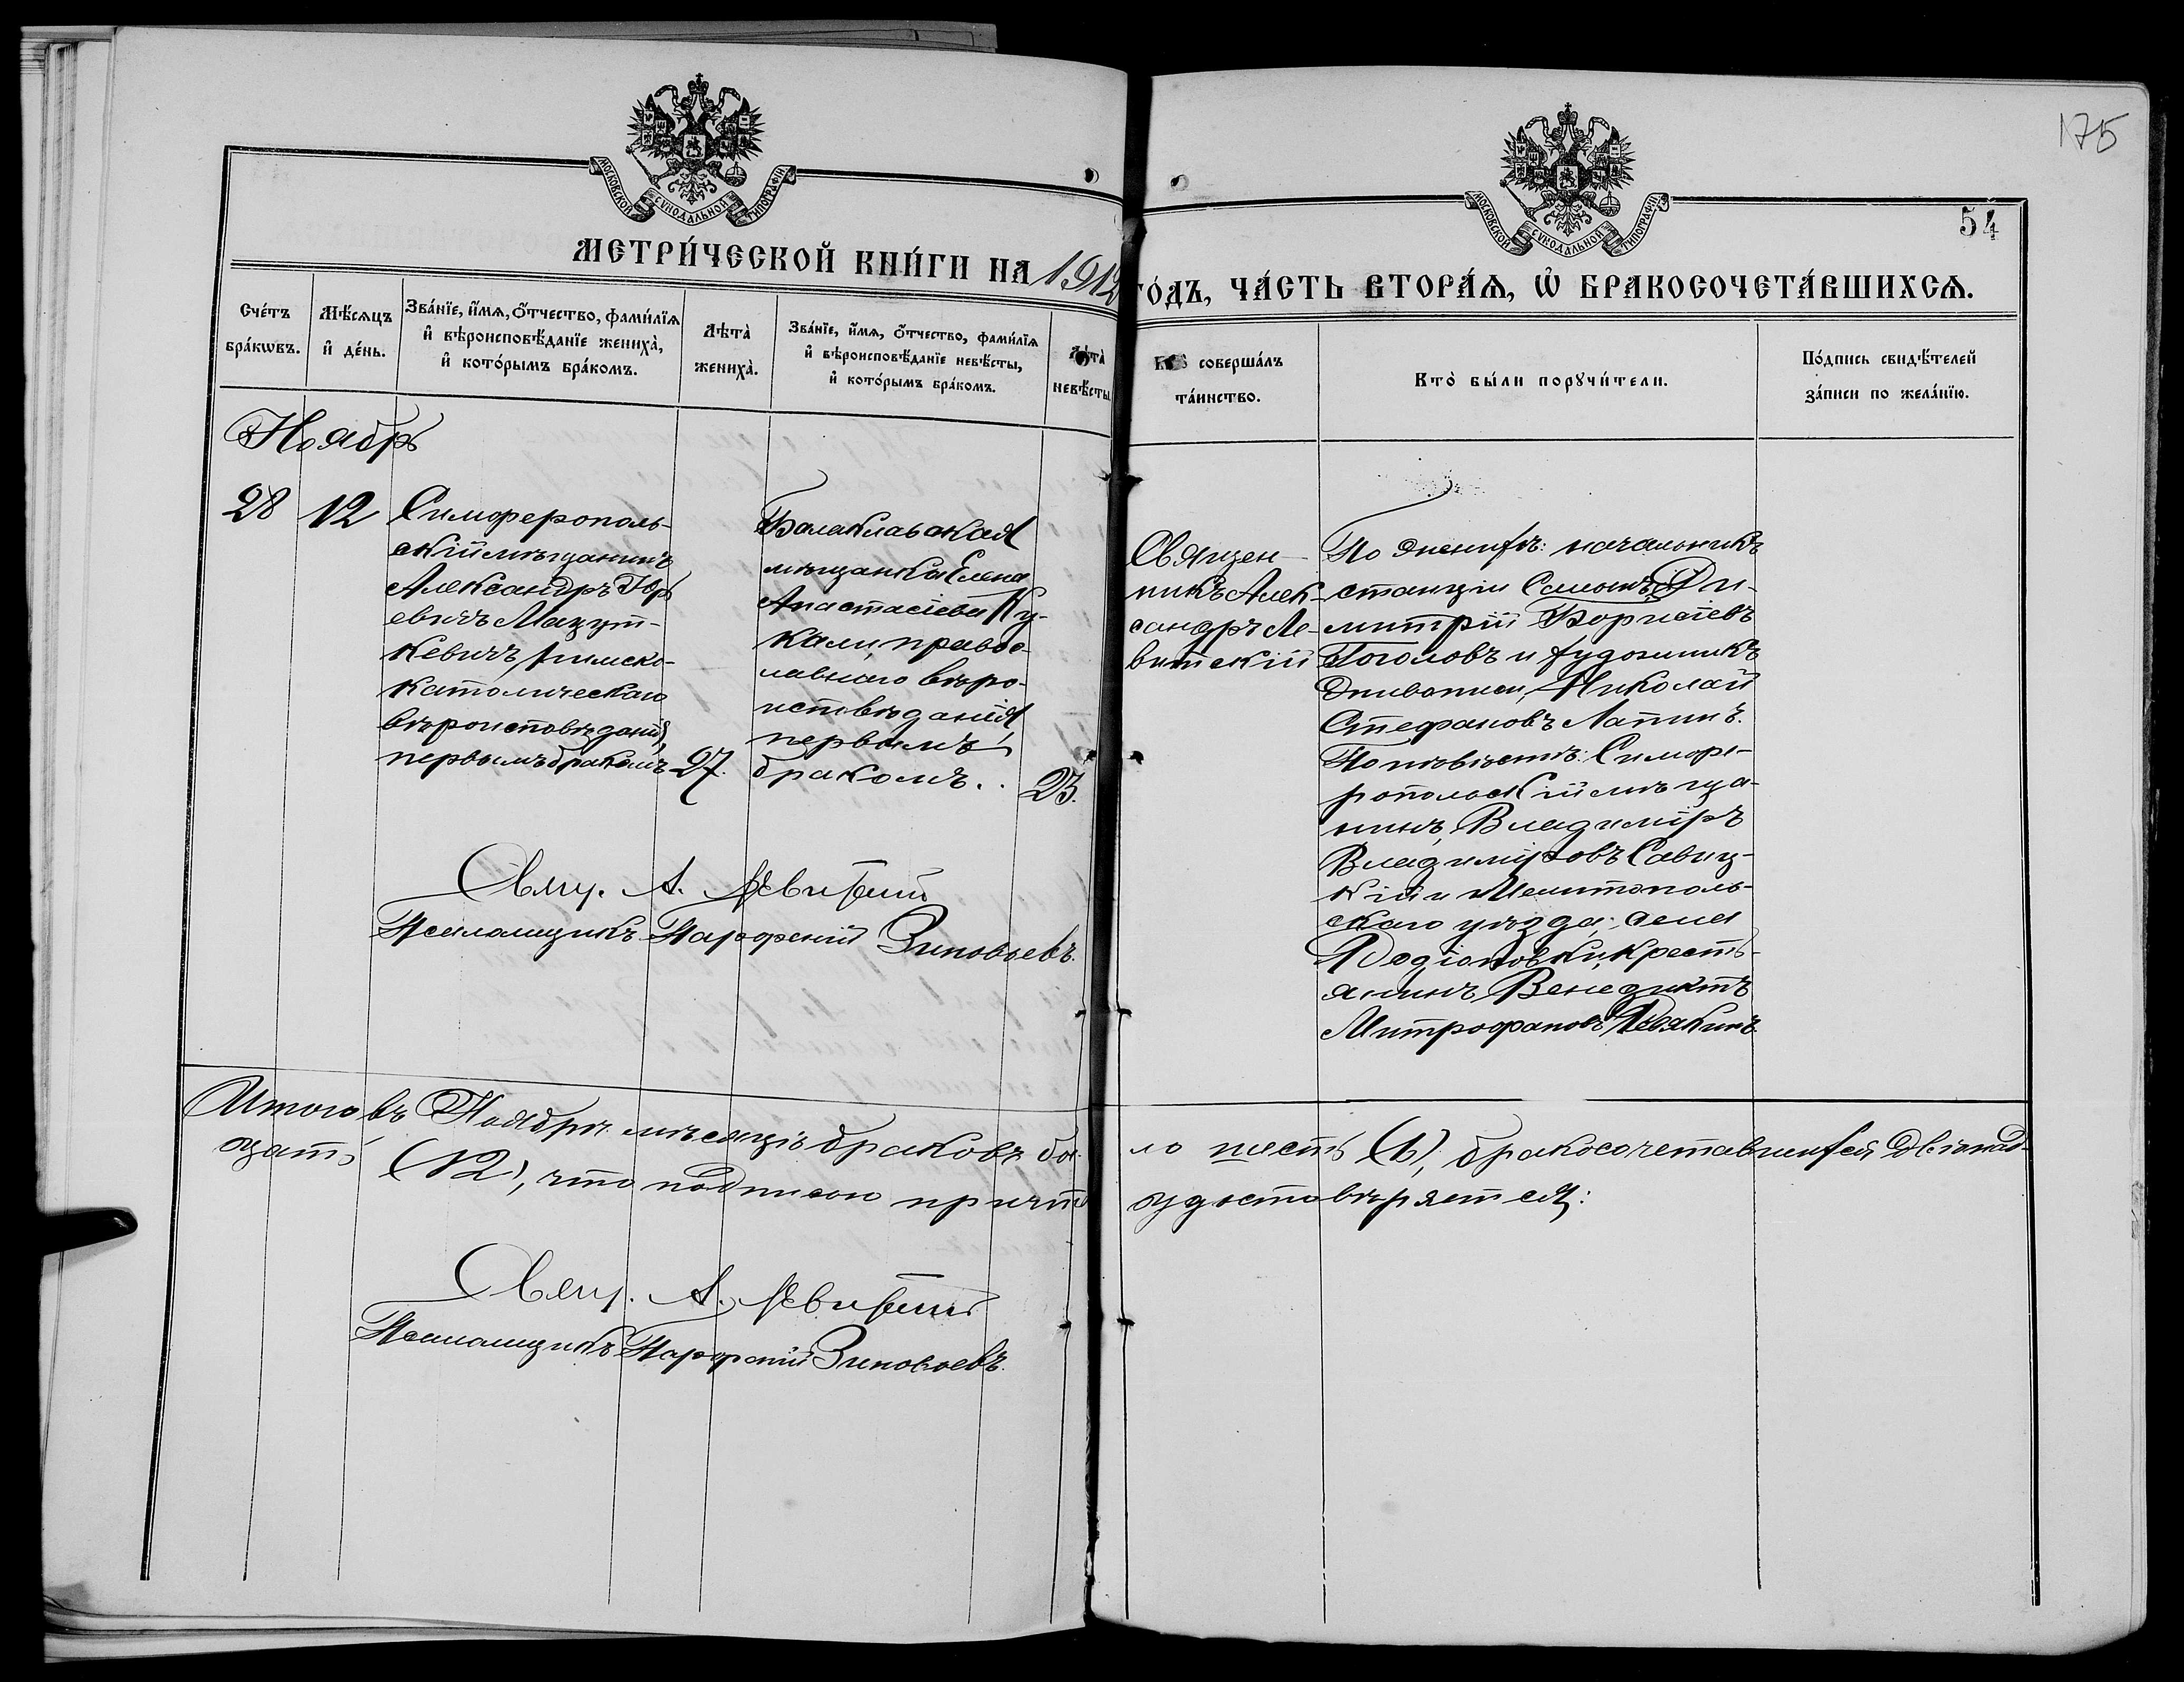 175
МОСКОВСКОЙ СѴНОДАЛЬНОЙ ТИПОГРАФІИ
МОСКОВСКОЙ СѴНОДАЛЬНОЙ ТИПОГРАФІИ
54
МЕТРИ́ЧЕСКОЙ КНИ́ГИ НА 1912
ГО́ДЪ, ЧА́СТЬ ВТОРА́Ѧ, Ѽ БРАКОСОЧЕТА́ВШИХСѦ.
Сче́тъ
бра́кѡвъ.
Мѣ́сѧцъ
и҆ де́нь.
Зва́нїе, и҆́мѧ, ѻ҆́тчество, фами́лїѧ
и҆ вѣроисповѣ́данїе жениха̀,
и҆ кото́рымъ бра́комъ.
Лѣта̀
жениха̀.
Зва́нїе, и҆́мѧ, ѻ҆́тчество, фами́лїѧ
и҆ вѣроисповѣ́данїе невѣ́сты,
и҆ кото́рымъ бра́комъ.
Лѣта̀
невѣ́сты.
Кто̀ соверша́лъ
та́инство.
Кто̀ бы́ли порꙋчи́тели.
По́дпись свидѣ́телей
за́писи по жела́нїю.
Ноябрь
28
12
Симферополь-
скій мѣщанинъ
Александръ Юрь
евичъ Мацут-
кевичъ, римско-
католическаго
вѣроисповѣданія,
первымъ бракомъ
27.
Балаклавская
мѣщанка Елена
Анастасіева Ку-
кали, правос-
лавнаго вѣро-
исповѣданія
первымъ
бракомъ.
23.
Священ-
никъ Алек-
сандръ Ле-
витскій
По женихѣ: начальникъ
станціи Сюйень, Ди-
митрій Борисіевъ
Гоголовъ и художникъ
живописи, Николай
Стефановъ Лапинъ.
По невѣстѣ: Симфе-
ропольскій мѣща-
нинъ, Владиміръ
Владиміровъ Савиц-
кій и Мелитополь-
скаго уѣзда, села
Родіоновки, кресть-
янинъ, Венедиктъ
Митрофановъ Рѣвякинъ.
Свящ. А. Левитскій
Псаломщикъ Парфеній Зиновьевъ.
Итого въ Ноябрѣ мѣсяцѣ браковъ бы-
ло шесть (6), бракосочетавшихся двѣнад-
цать (12), что подписью причта
удостовѣряется:
Свящ. А. Левитскій
Псаломщикъ Парфеній Зиновьевъ.